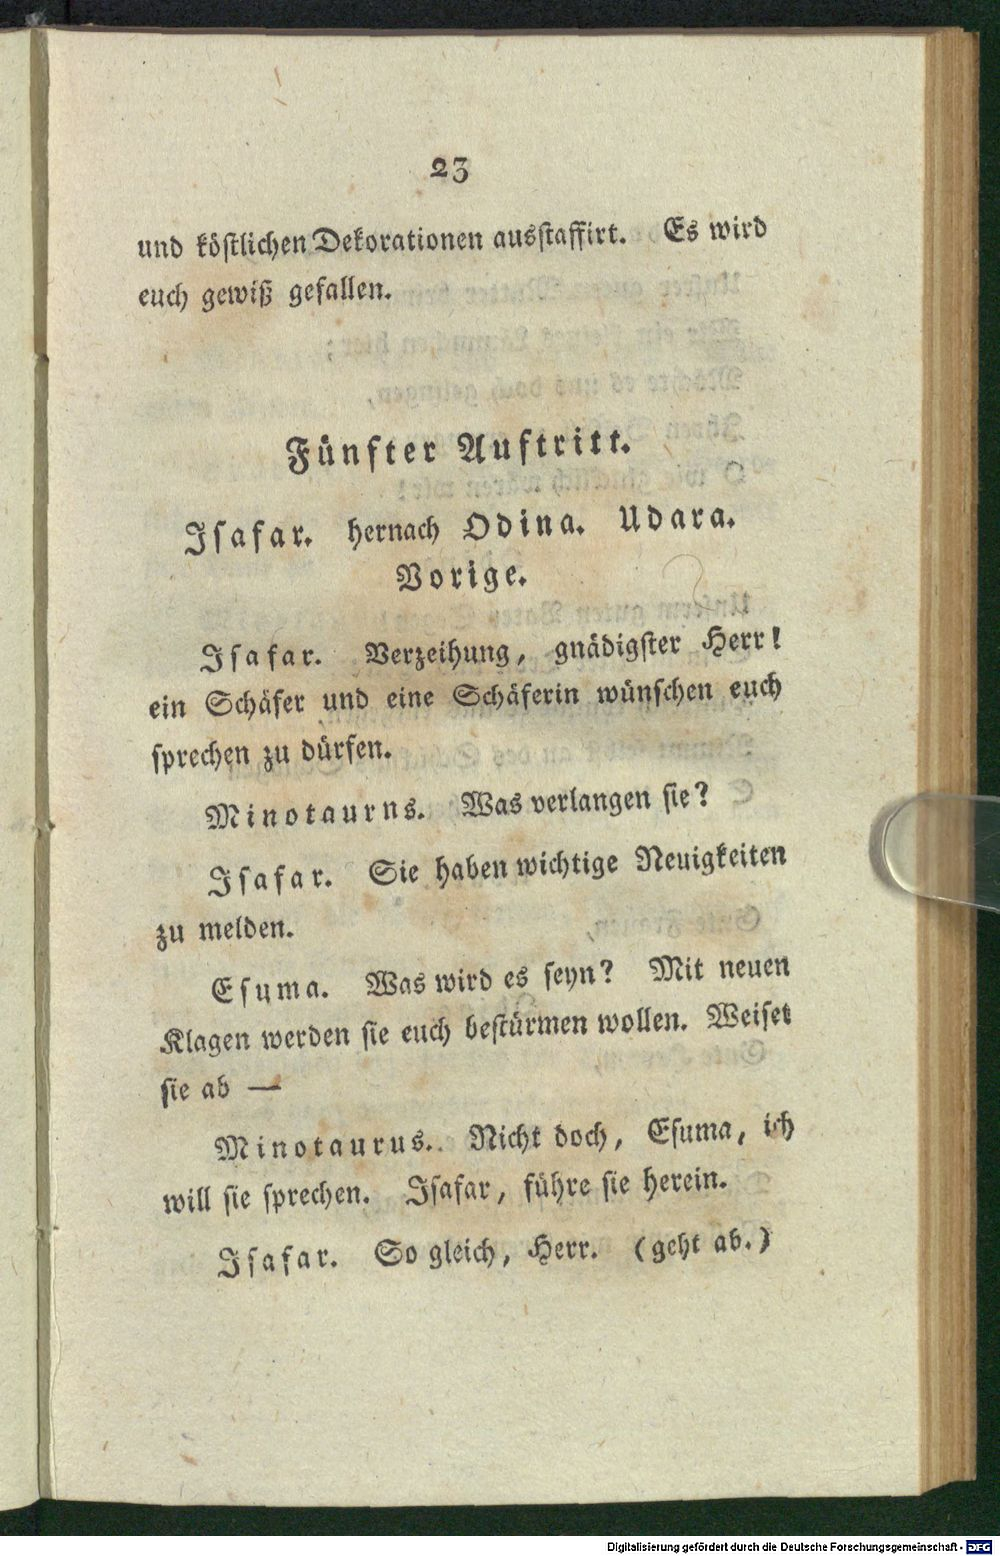 23
und köstlichen Dekorationen ausstaffirt. Es wird
euch gewiß gefallen.
Fünfter Auftritt.
Isafar. hernach Odina. Udara.
Vorige.
Isafar. Verzeihung, gnädigster Herr!
ein Schäfer und eine Schäferin wünschen euch
sprechen zu dürfen.
Minotaurns. Was verlangen sie?
Isafar. Sie haben wichtige Neuigkeiten
zu melden.
Esuma. Was wird es seyn? Mit neuen
Klagen werden sie euch bestürmen wollen. Weiset
sie ab —
Minotaurus. Nicht doch, Esuma, ich
will sie sprechen. Isafar, führe sie herein.
Isafar. So gleich, Herr. (geht ab.)
Digitalisierung gefördert durch die Deutsche Forschungsgemeinschaft - DFG